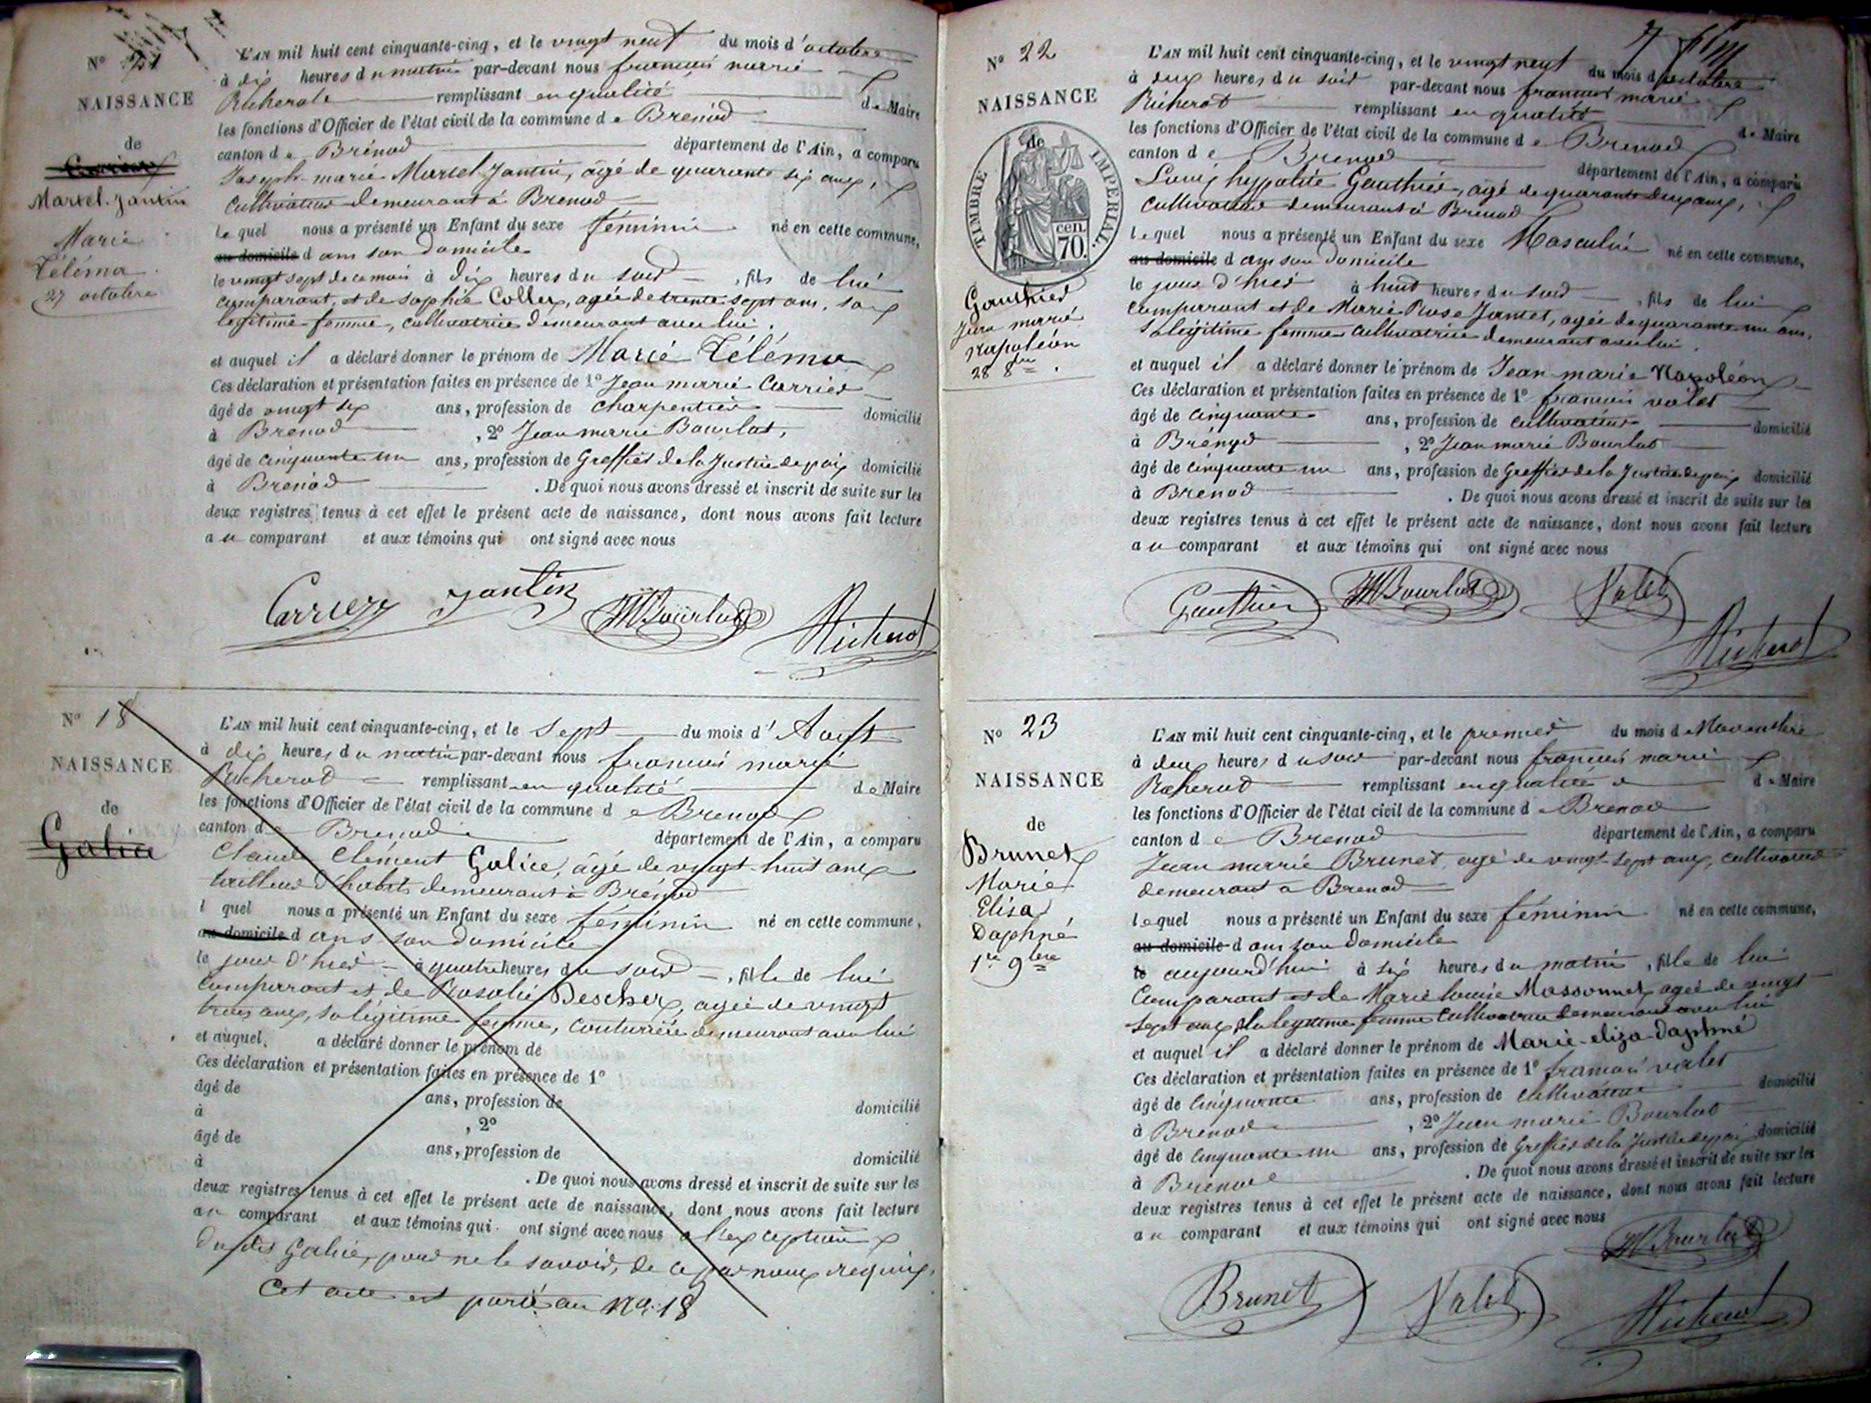 N° 21
NAISSANCE
de
Martel-Jantin
Marie
Téléma
27 octobre
L'AN mil huit cent cinquante-cinq, et le vingt neuf du mois d'octobre
à dix heures du matin par-devant nous françois marie
Richerot remplissant en qualité de Maire
les fonctions d'Officier de l'état civil de la commune de Brénod
canton de Brénod département de l'Ain, a comparu
Joseph-marie Martel-Jantin, âgé de quarante six ans,
cultivateur demeurant à Brenod
lequel nous a présenté un Enfant du sexe féminin né en cette commune,
au domicile dans son domicile
le vingt sept de ce mois à dix heures du soir, fils de lui
comparant, et de Sophie Collex, agée de trente sept ans, sa
légitime femme, cultivatrice demeurant avec lui.
et auquel il a déclaré donner le prénom de Marie Téléma
Ces déclaration et présentation faites en présence de 1° Jean marie Carrier
âgé de vingt six ans, profession de charpentier domicilié
à Brenod, 2° Jean marie Bourlot,
âgé de cinquante un ans, profession de Greffier de la Justice de paix domicilié
à Brenod. De quoi nous avons dressé et inscrit de suite sur les
deux registres tenus à cet effet le présent acte de naissance, dont nous avons fait lecture
au comparant et aux témoins qui ont signé avec nous
Carrier Jantin JMBourlot Richerot
N° 18
NAISSANCE
de
Galice
L'AN mil huit cent cinquante-cinq, et le sept du mois d'Aout
à dix heures du matin par-devant nous françois marie
Richerot remplissant en qualité de Maire
les fonctions d'Officier de l'état civil de la commune de Brenod
canton de Brenod département de l'Ain, a comparu
Claude Clément Galice, âgé de vingt-huit ans
tailleur d'habits demeurant à Brénod
l quel nous a présenté un Enfant du sexe féminin né en cette commune,
au domicile dans son domicile
le jour d'hier à quatre heures du soir, fille de lui
comparant et de Rosalie Descher, agée de vingt
trois ans, sa légitime femme, couturière demeurant avec lui
et auquel a déclaré donner le prénom de
Ces déclaration et présentation faites en présence de 1°
âgé de ans, profession de
à domicilié
, 2°
âgé de ans, profession de
à domicilié
. De quoi nous avons dressé et inscrit de suite sur les
deux registres tenus à cet effet le présent acte de naissance, dont nous avons fait lecture
au comparant et aux témoins qui ont signé avec nous à l'exception
dudit Galice, pour ne le savoir, de ce par nous requis,
Cet acte est porté au No. 18
N° 22
NAISSANCE
de
TIMBRE IMPERIAL.
70. cen.
Gauthier
Jean marie
Napoléon
28 8bre.
L'AN mil huit cent cinquante-cinq, et le vingt neuf du mois d'octobre
à deux heures du soir par-devant nous françois marie
Richerot remplissant en qualité de Maire
les fonctions d'Officier de l'état civil de la commune de Brenod
canton de Brenod département de l'Ain, a comparu
Louis hyppolite Gauthier, agé de quarante deux ans,
cultivateur demeurant à Brénod
lequel nous a présenté un Enfant du sexe Masculin né en cette commune,
au domicile dans son domicile
le jour d'hier à huit heures du soir, fils de lui
comparant et de Marie Rose Jantet, agée de quarante un ans,
sa légitime femme cultivatrice demeurant avec lui.
et auquel il a déclaré donner le prénom de Jean-marie Napoléon
Ces déclaration et présentation faites en présence de 1° françois valet
âgé de cinquante ans, profession de cultivateur domicilié
à Brénod, 2° Jean marie Bourlot
âgé de cinquante un ans, profession de Greffier de la Justice de paix domicilié
à Brenod. De quoi nous avons dressé et inscrit de suite sur les
deux registres tenus à cet effet le présent acte de naissance, dont nous avons fait lecture
au comparant et aux témoins qui ont signé avec nous
Gauthier JMBourlot Valet
Richerot
N° 23
NAISSANCE
de
Brunet
Marie
Elisa
Daphné
1er 9bre
L'AN mil huit cent cinquante-cinq, et le premier du mois de Novembre
à deux heures du soir par-devant nous françois marie
Richerot remplissant en qualité de Maire
les fonctions d'Officier de l'état civil de la commune de Brenod
canton de Brenod département de l'Ain, a comparu
Jean marie Brunet, agé de vingt-sept ans, cultivateur
demeurant à Brenod
lequel nous a présenté un Enfant du sexe féminin né en cette commune,
au domicile dans son domicile
le aujourd'hui à six heures du matin, fille de lui
Comparant et de Marie louise Massonnet, agée de vingt
sept ans, sa légitime femme cultivatrice demeurant avec lui
et auquel il a déclaré donner le prénom de Marie-eliza-Daphné
Ces déclaration et présentation faites en présence de 1° françois valet
âgé de cinquante ans, profession de cultivateur domicilié
à Brenod, 2° Jean marie Bourlot
âgé de cinquante un ans, profession de Greffier de la Justice de paix domicilié
à Brénod. De quoi nous avons dressé et inscrit de suite sur les
deux registres tenus à cet effet le présent acte de naissance, dont nous avons fait lecture
au comparant et aux témoins qui ont signé avec nous
JMBourlot
Brunet Valet Richerot